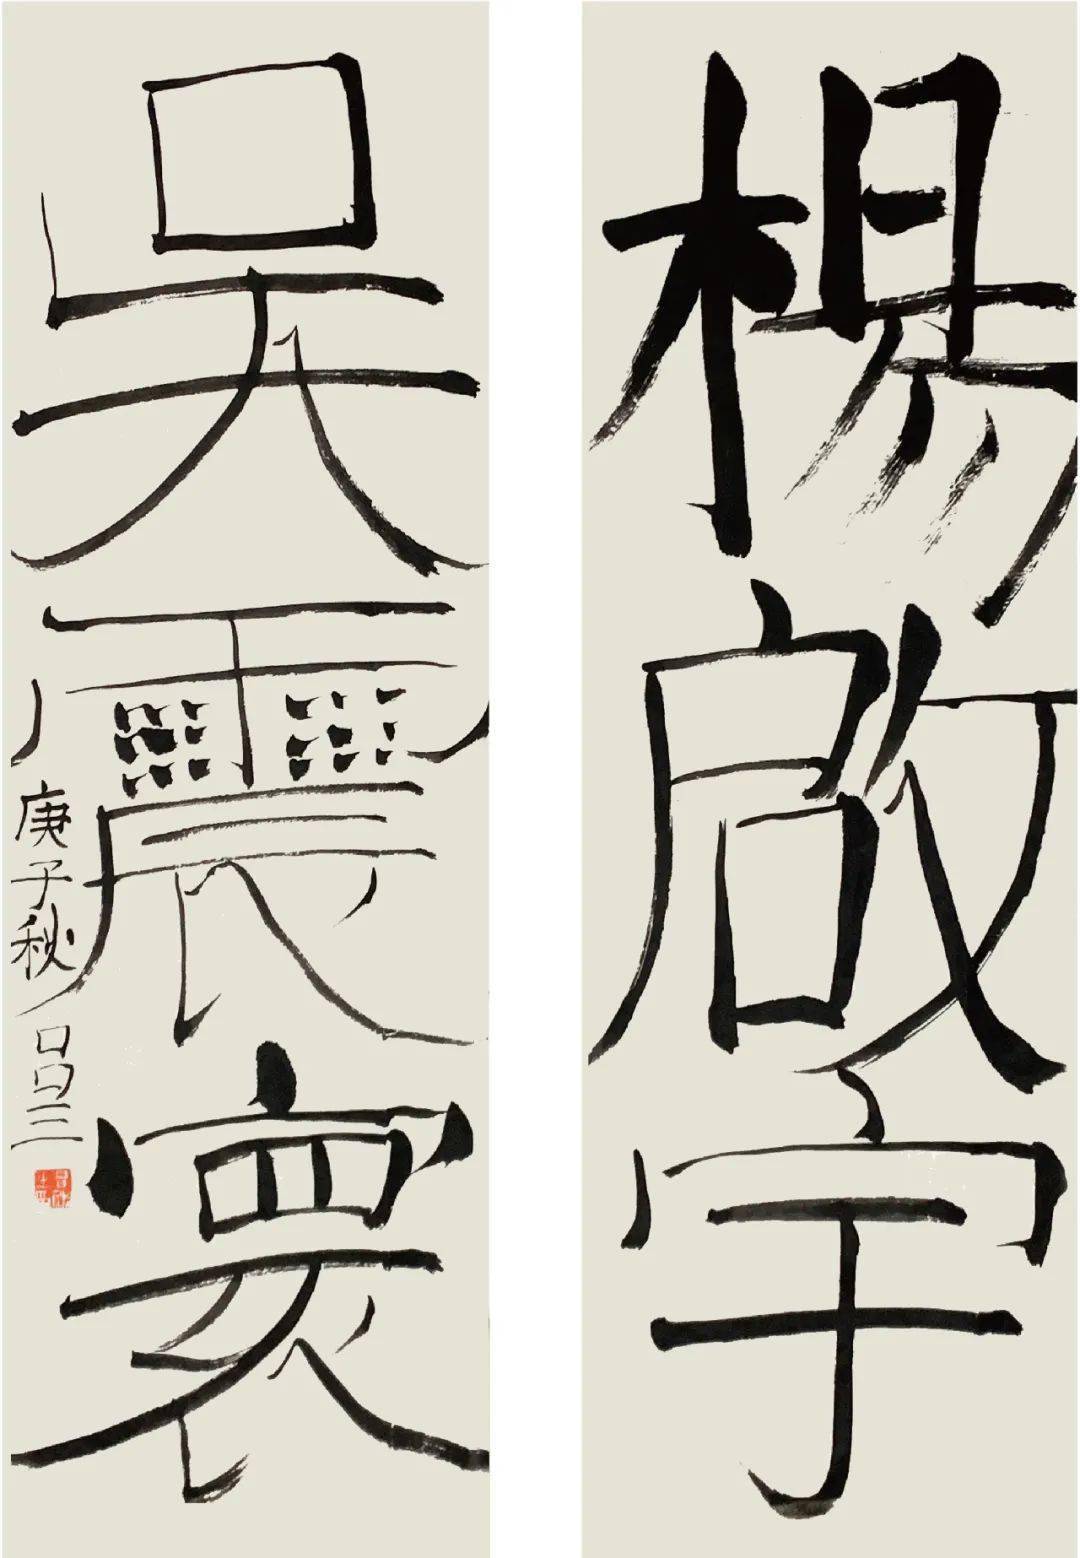 楊啟宇
吳震寰
庚子秋 吕三